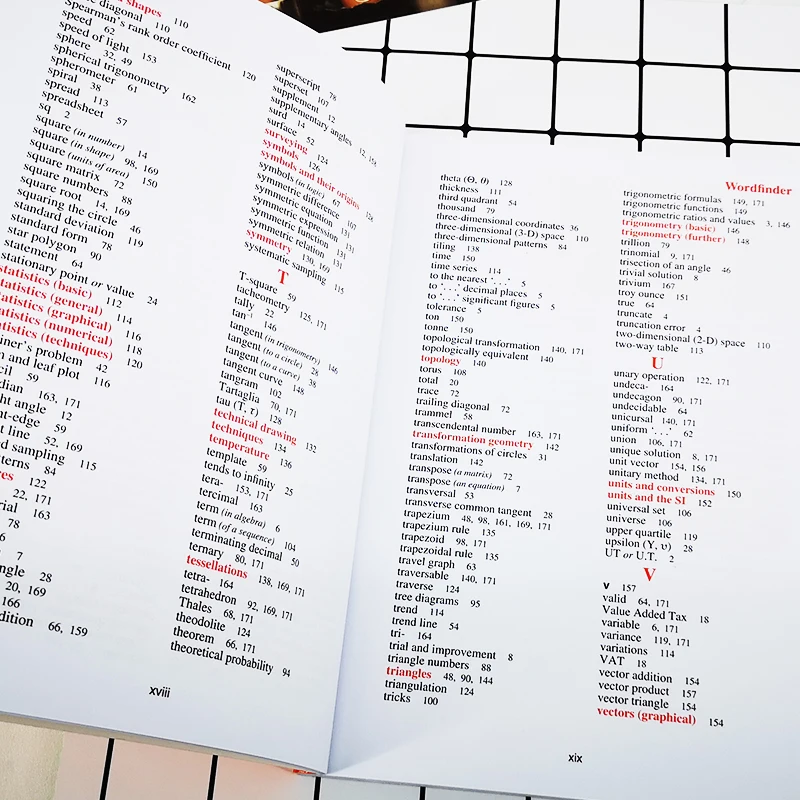 shapes 110
diagonal 110
Spearman's rank order coefficient 120
speed 62
speed of light 153
sphere 32, 49
spherical trigonometry 162
spherometer 61
spiral 38
spread 113
spreadsheet 57
sq 2
square (in number) 14
square (in shape) 98, 169
square (units of area) 150
square matrix 72
square numbers 88
square root 14, 169
squaring the circle 46
standard deviation 119
standard form 78
star polygon 90
statement 64
stationary point or value 24
statistics (basic) 112
statistics (general) 114
statistics (graphical) 116
statistics (numerical) 118
statistics (techniques) 120
iner's problem 42
and leaf plot 116
cil 59
dian 163, 171
ht angle 12
ht-edge 59
t line 52, 169
d sampling 115
tterns 84
es 122
22, 171
rial 163
78
6
7
ngle 28
20, 169
166
dition 66, 159
superscript 78
superset 107
supplement 12
supplementary angles 12, 156
surd 14
surface 52
surveying 124
symbols 126
symbols and their origins 128
symbols (in logic) 67
symmetric difference 107
symmetric equation 131
symmetric expression 131
symmetric function 131
symmetric relation 131
symmetry 130, 169
systematic sampling 115
T
T-square 59
tacheometry 125, 171
tally 22
tan 146
tangent (in trigonometry) 146
tangent (to a circle) 28
tangent (to a curve) 38
tangent curve 148
tangram 102
Tartaglia 70, 171
tau (T, τ) 128
technical drawing 132
techniques 134
temperature 136
template 59
tends to infinity 25
tera- 153, 171
tercimal 163
term (in algebra) 6
term (of a sequence) 104
terminating decimal 50
ternary 80, 171
tessellations 138, 169, 171
tetra- 164
tetrahedron 92, 169, 171
Thales 68, 171
theodolite 124
theorem 66, 171
theoretical probability 94
xviii
Wordfinder
theta (Θ, θ) 128
thickness 111
third quadrant 54
thousand 79
three-dimensional coordinates 36
three-dimensional (3-D) space 110
three-dimensional patterns 84
tiling 138
time 150
time series 114
to the nearest '. . .' 5
to '. . .' decimal places 5
to '. . .' significant figures 5
tolerance 5
ton 150
tonne 150
topological transformation 140, 171
topologically equivalent 140
topology 140
torus 108
total 20
trace 72
trailing diagonal 72
trammel 58
transcendental number 163, 171
transformation geometry 142
transformations of circles 31
translation 142
transpose (a matrix) 72
transpose (an equation) 7
transversal 53
transverse common tangent 28
trapezium 48, 98, 161, 169, 171
trapezium rule 135
trapezoid 98, 171
trapezoidal rule 135
travel graph 63
traversable 140, 171
traverse 124
tree diagrams 95
trend 114
trend line 54
tri- 164
trial and improvement 8
triangle numbers 88
triangles 48, 90, 144
triangulation 124
tricks 100
trigonometric formulas 149, 171
trigonometric functions 149
trigonometric ratios and values 3, 146
trigonometry (basic) 146
trigonometry (further) 148
trillion 79
trinomial 9, 171
trisection of an angle 46
trivial solution 8
trivium 167
troy ounce 151
true 64
truncate 4
truncation error 4
two-dimensional (2-D) space 110
two-way table 113
U
unary operation 122, 171
undeca- 164
undecagon 90, 171
undecidable 64
unicursal 140, 171
uniform '. . .' 62
union 106, 171
unique solution 8, 171
unit vector 154, 156
unitary method 134, 171
units and conversions 150
units and the SI 152
universal set 106
universe 106
upper quartile 119
upsilon (Υ, υ) 28
UT or U.T. 2
V
v 157
valid 64, 171
Value Added Tax 18
variable 6, 171
variance 119, 171
variations 114
VAT 18
vector addition 154
vector product 157
vector triangle 154
vectors (graphical) 154
xix